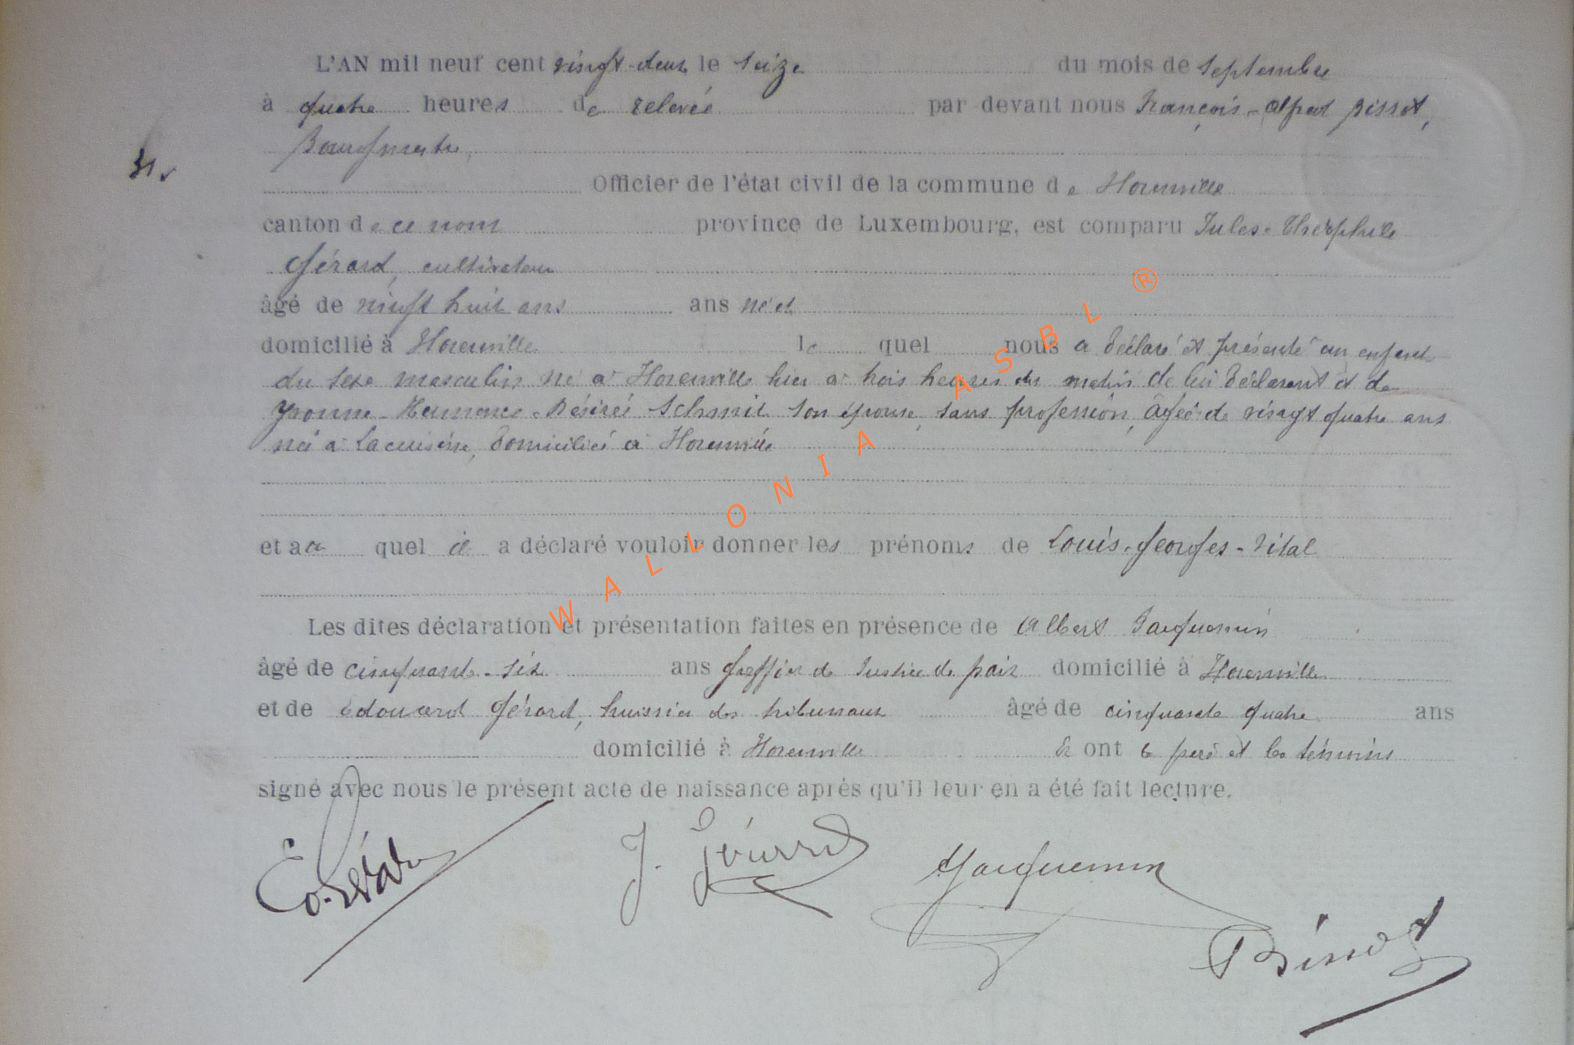 L'AN mil neuf cent vingt-deux le seize du mois de septembre
à quatre heures de relevée par devant nous François-Alfred Pissot,
Bourgmestre,
31.
Officier de l'état civil de la commune de Florenville
canton de ce nom province de Luxembourg, est comparu Jules-Théophile
Gérard, cultivateur
âgé de vingt huit ans ans né et
domicilié à Florenville le quel nous a déclaré et présenté un enfant
du sexe masculin né à Florenville hier à trois heures du matin de lui déclarant et de
Yvonne-Hermance-Désirée Schmit son épouse, sans profession, âgée de vingt quatre ans
née à Lacuisine, domiciliée à Florenville
et au quel il a déclaré vouloir donner les prénoms de Louis-Georges-Vital
Les dites déclaration et présentation faites en présence de Albert Jacquemin
âgé de cinquante-six ans greffier de Justice de paix domicilié à Florenville
et de Edouard Gérard, huissier des tribunaux âgé de cinquante quatre ans
domicilié à Florenville & ont le père et les témoins
signé avec nous le présent acte de naissance après qu'il leur en a été fait lecture.
J. Gérard
Jacquemin
WALLONIA ASBL ®